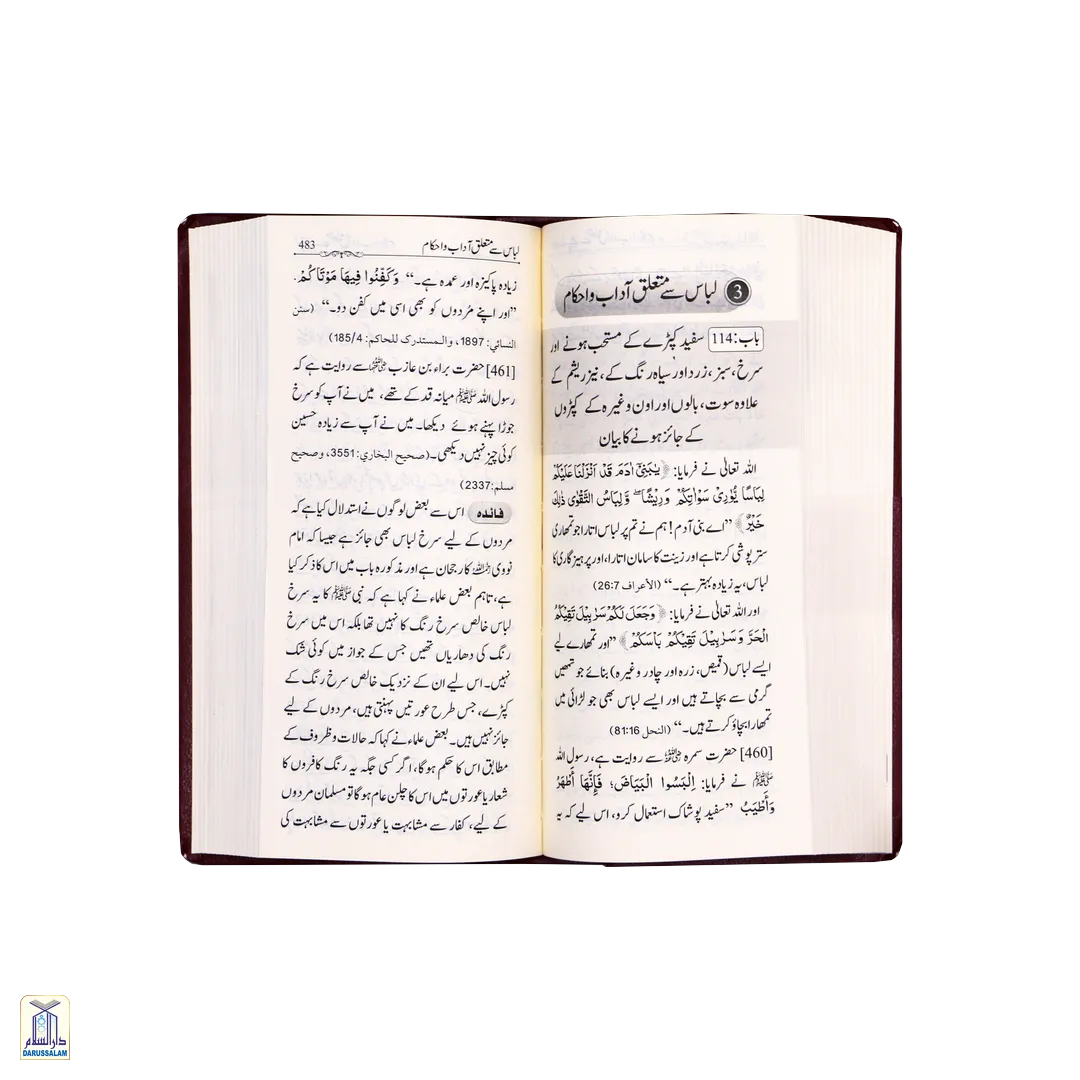 3 لباس سے متعلق آداب و احکام
باب:114 سفید کپڑے کے مستحب ہونے اور
سرخ، سبز، زرد اور سیاہ رنگ کے، نیز ریشم کے
علاوہ سوت، بالوں اور اون وغیرہ کے کپڑوں
کے جائز ہونے کا بیان
اللہ تعالیٰ نے فرمایا: ﴿يٰبَنِيْٓ اٰدَمَ قَدْ اَنْزَلْنَا عَلَيْكُمْ
لِبَاسًا يُّوَارِيْ سَوْاٰتِكُمْ وَرِيْشًا ۭ وَلِبَاسُ التَّقْوٰى ذٰلِكَ
خَيْرٌ﴾ ”اے بنی آدم! ہم نے تم پر لباس اتارا جو تمھاری
ستر پوشی کرتا ہے اور زینت کا سامان اتارا، اور پرہیز گاری کا
لباس، یہ زیادہ بہتر ہے۔“ (الأعراف 26:7)
اور اللہ تعالیٰ نے فرمایا: ﴿وَجَعَلَ لَكُمْ سَرَابِيْلَ تَقِيْكُمُ
الْحَرَّ وَسَرَابِيْلَ تَقِيْكُمْ بَاْسَكُمْ﴾ ”اور تمھارے لیے
ایسے لباس (قمیص، زرہ اور چادر وغیرہ) بنائے جو تمھیں
گرمی سے بچاتے ہیں اور ایسے لباس بھی جو لڑائی میں
تمھارا بچاؤ کرتے ہیں۔“ (النحل 81:16)
[460] حضرت سمرہ ؓ سے روایت ہے، رسول اللہ
ﷺ نے فرمایا: اِلْبَسُوا الْبَيَاضَ؛ فَإِنَّهَا أَطْهَرُ
وَأَطْيَبُ ”سفید پوشاک استعمال کرو، اس لیے کہ یہ
لباس سے متعلق آداب و احکام 483
زیادہ پاکیزہ اور عمدہ ہے۔“ وَكَفِّنُوا فِيهَا مَوْتَاكُمْ.
”اور اپنے مُردوں کو بھی اسی میں کفن دو۔“ (سنن
النسائي: 1897، والمستدرك للحاكم: 185/4)
[461] حضرت براء بن عازب ؓ سے روایت ہے کہ
رسول اللہ ﷺ میانہ قد کے تھے، میں نے آپ کو سرخ
جوڑا پہنے ہوئے دیکھا۔ میں نے آپ سے زیادہ حسین
کوئی چیز نہیں دیکھی۔ (صحيح البخاري: 3551، وصحيح
مسلم: 2337)
فائدہ اس سے بعض لوگوں نے استدلال کیا ہے کہ
مردوں کے لیے سرخ لباس بھی جائز ہے جیسا کہ امام
نووی ؒ کا رجحان ہے اور مذکورہ باب میں اس کا ذکر کیا
ہے، تاہم بعض علماء نے کہا ہے کہ نبی ﷺ کا یہ سرخ
لباس خالص سرخ رنگ کا نہیں تھا بلکہ اس میں سرخ
رنگ کی دھاریاں تھیں جس کے جواز میں کوئی شک
نہیں۔ اس لیے ان کے نزدیک خالص سرخ رنگ کے
کپڑے، جس طرح عورتیں پہنتی ہیں، مردوں کے لیے
جائز نہیں ہیں۔ بعض علماء نے کہا کہ حالات و ظروف کے
مطابق اس کا حکم ہوگا، اگر کسی جگہ یہ رنگ کافروں کا
شعار یا عورتوں میں اس کا چلن عام ہو گا تو مسلمان مردوں
کے لیے، کفار سے مشابہت یا عورتوں سے مشابہت کی
دار السلام
DARUSSALAM